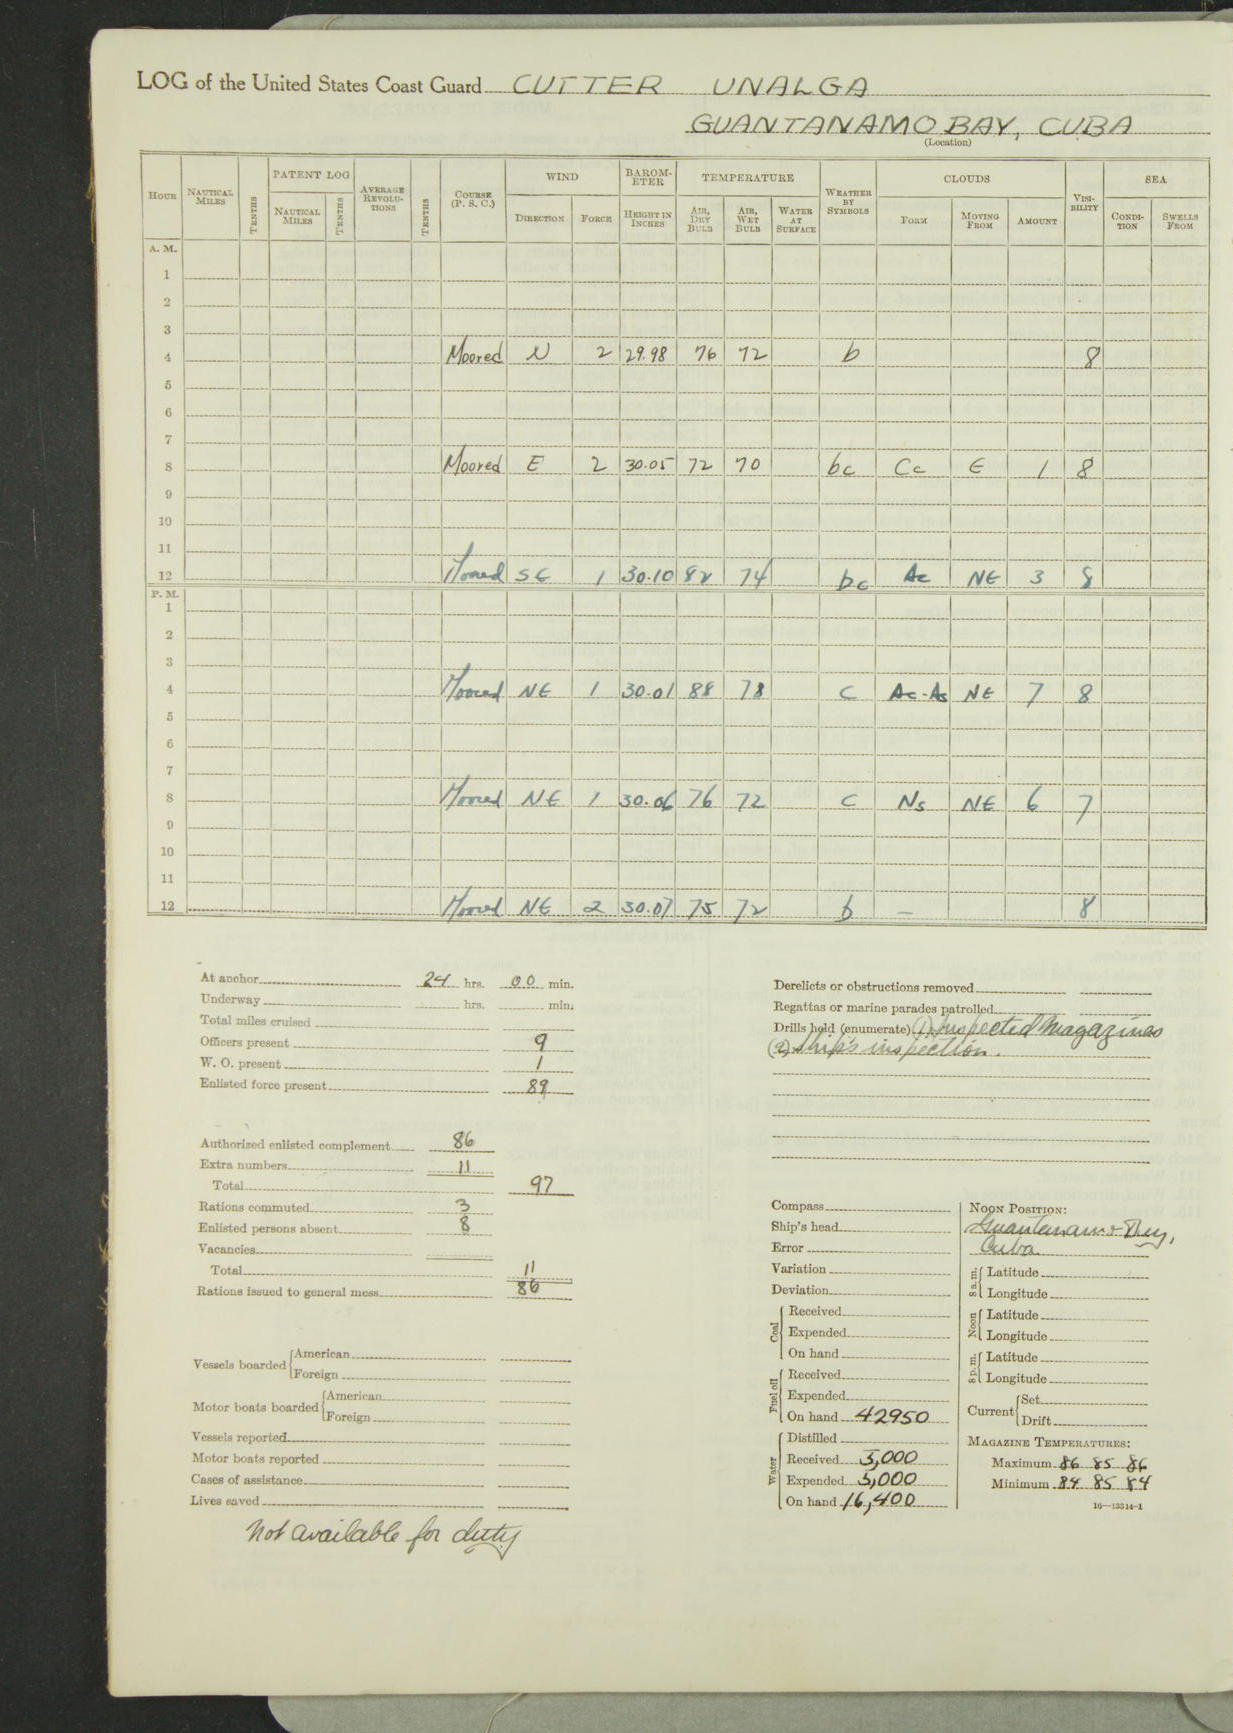 LOG of the United States Coast Guard CUTTER UNALGA
GUANTANAMO BAY, CUBA
(Location)
HOUR NAUTICAL MILES TENTHS PATENT LOG NAUTICAL MILES TENTHS AVERAGE REVOLUTIONS TENTHS COURSE (P. S. C.) WIND DIRECTION FORCE BAROMETER HEIGHT IN INCHES TEMPERATURE AIR, DRY BULB AIR, WET BULB WATER AT SURFACE WEATHER BY SYMBOLS CLOUDS FORM MOVING FROM AMOUNT VISIBILITY SEA CONDITION SWELLS FROM
A. M.
1
2
3
4 Moored N 2 29.98 76 72 b 8
5
6
7
8 Moored E 2 30.05 72 70 bc Cc E 1 8
9
10
11
12 Moored SE 1 30.10 82 74 bc Ac NE 3 8
P. M.
1
2
3
4 Moored NE 1 30.01 88 78 c Ac-As NE 7 8
5
6
7
8 Moored NE 1 30.06 76 72 c Ns NE 6 7
9
10
11
12 Moored NE 2 30.07 75 72 b — 8
At anchor 24 hrs. 00 min.
Underway hrs. min.
Total miles cruised
Officers present 9
W. O. present 1
Enlisted force present 89
Authorized enlisted complement 86
Extra numbers 11
Total 97
Rations commuted 3
Enlisted persons absent 8
Vacancies
Total 11
Rations issued to general mess 86
Vessels boarded American
Foreign
Motor boats boarded American
Foreign
Vessels reported
Motor boats reported
Cases of assistance
Lives saved
Not available for duty
Derelicts or obstructions removed
Regattas or marine parades patrolled
Drills held (enumerate) (1) Inspected Magazines
(2) Ship's inspection.
Compass
Ship's head
Error
Variation
Deviation
Coal Received
Expended
On hand
Fuel oil Received
Expended
On hand 42950
Water Distilled
Received 5,000
Expended 5,000
On hand 16,400
NOON POSITION:
Guantanamo Bay,
Cuba
8 a. m. Latitude
Longitude
Noon Latitude
Longitude
8 p. m. Latitude
Longitude
Current Set
Drift
MAGAZINE TEMPERATURES:
Maximum 86 85 86
Minimum 84 85 84
16—13314-1